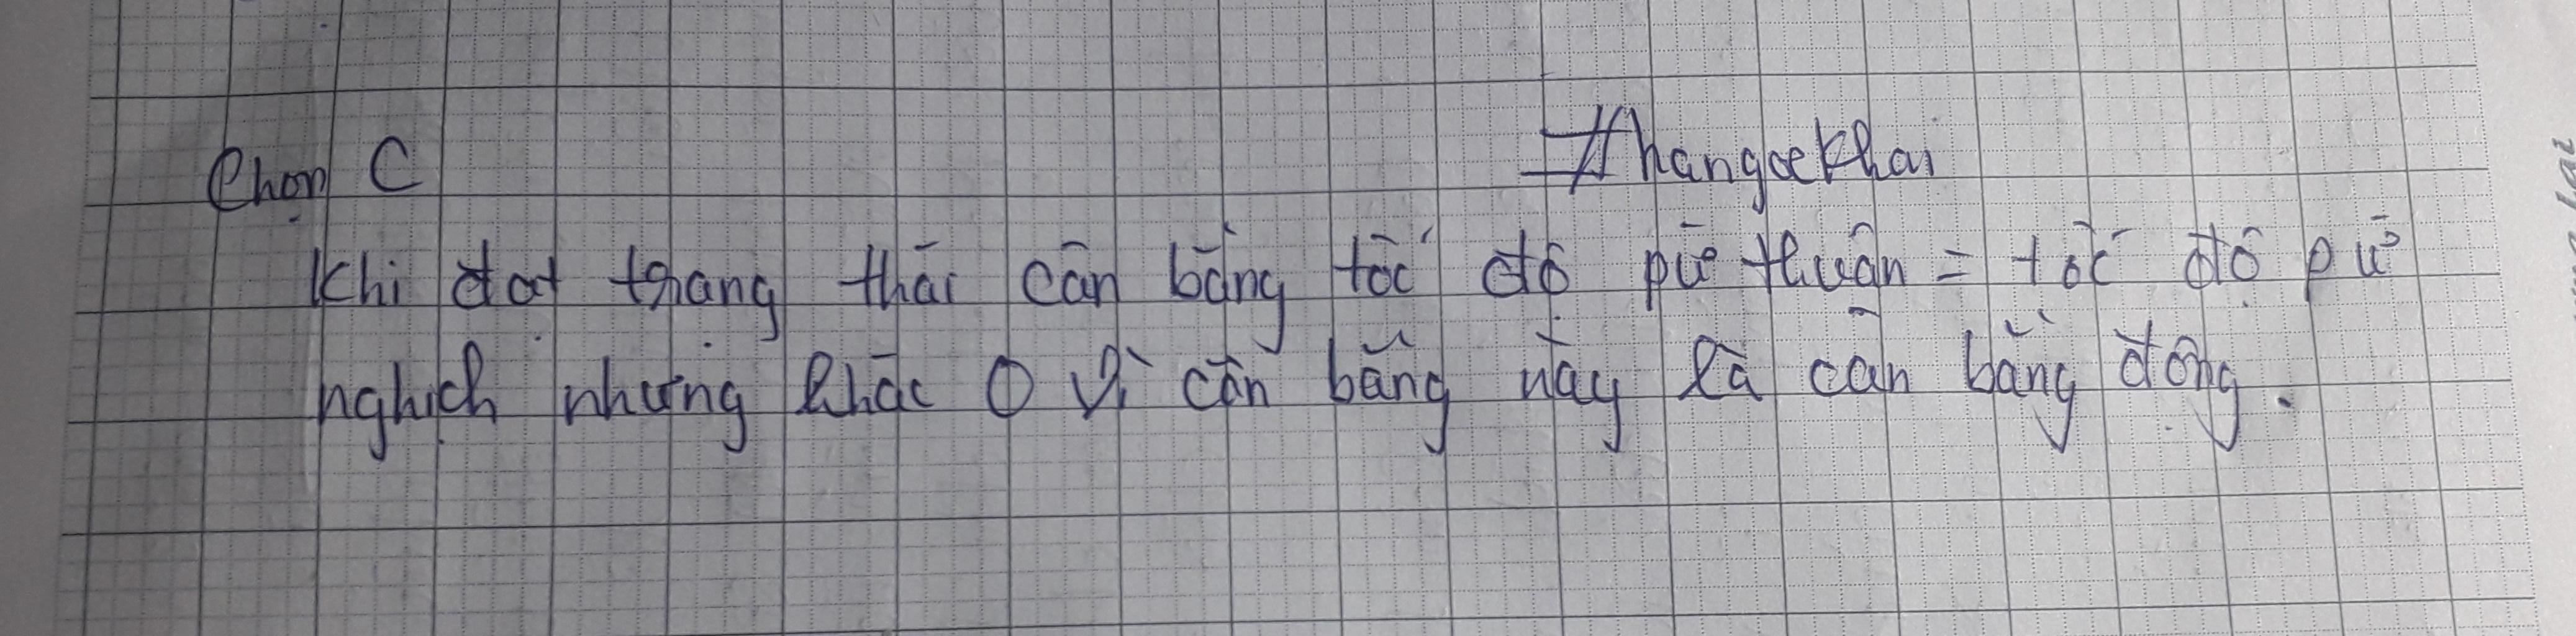 Chọn C
#hangockhai
Khi đạt trạng thái cân bằng tốc độ pứ thuận = tốc độ pứ
nghịch nhưng khác 0 vì cân bằng này là cân bằng động.